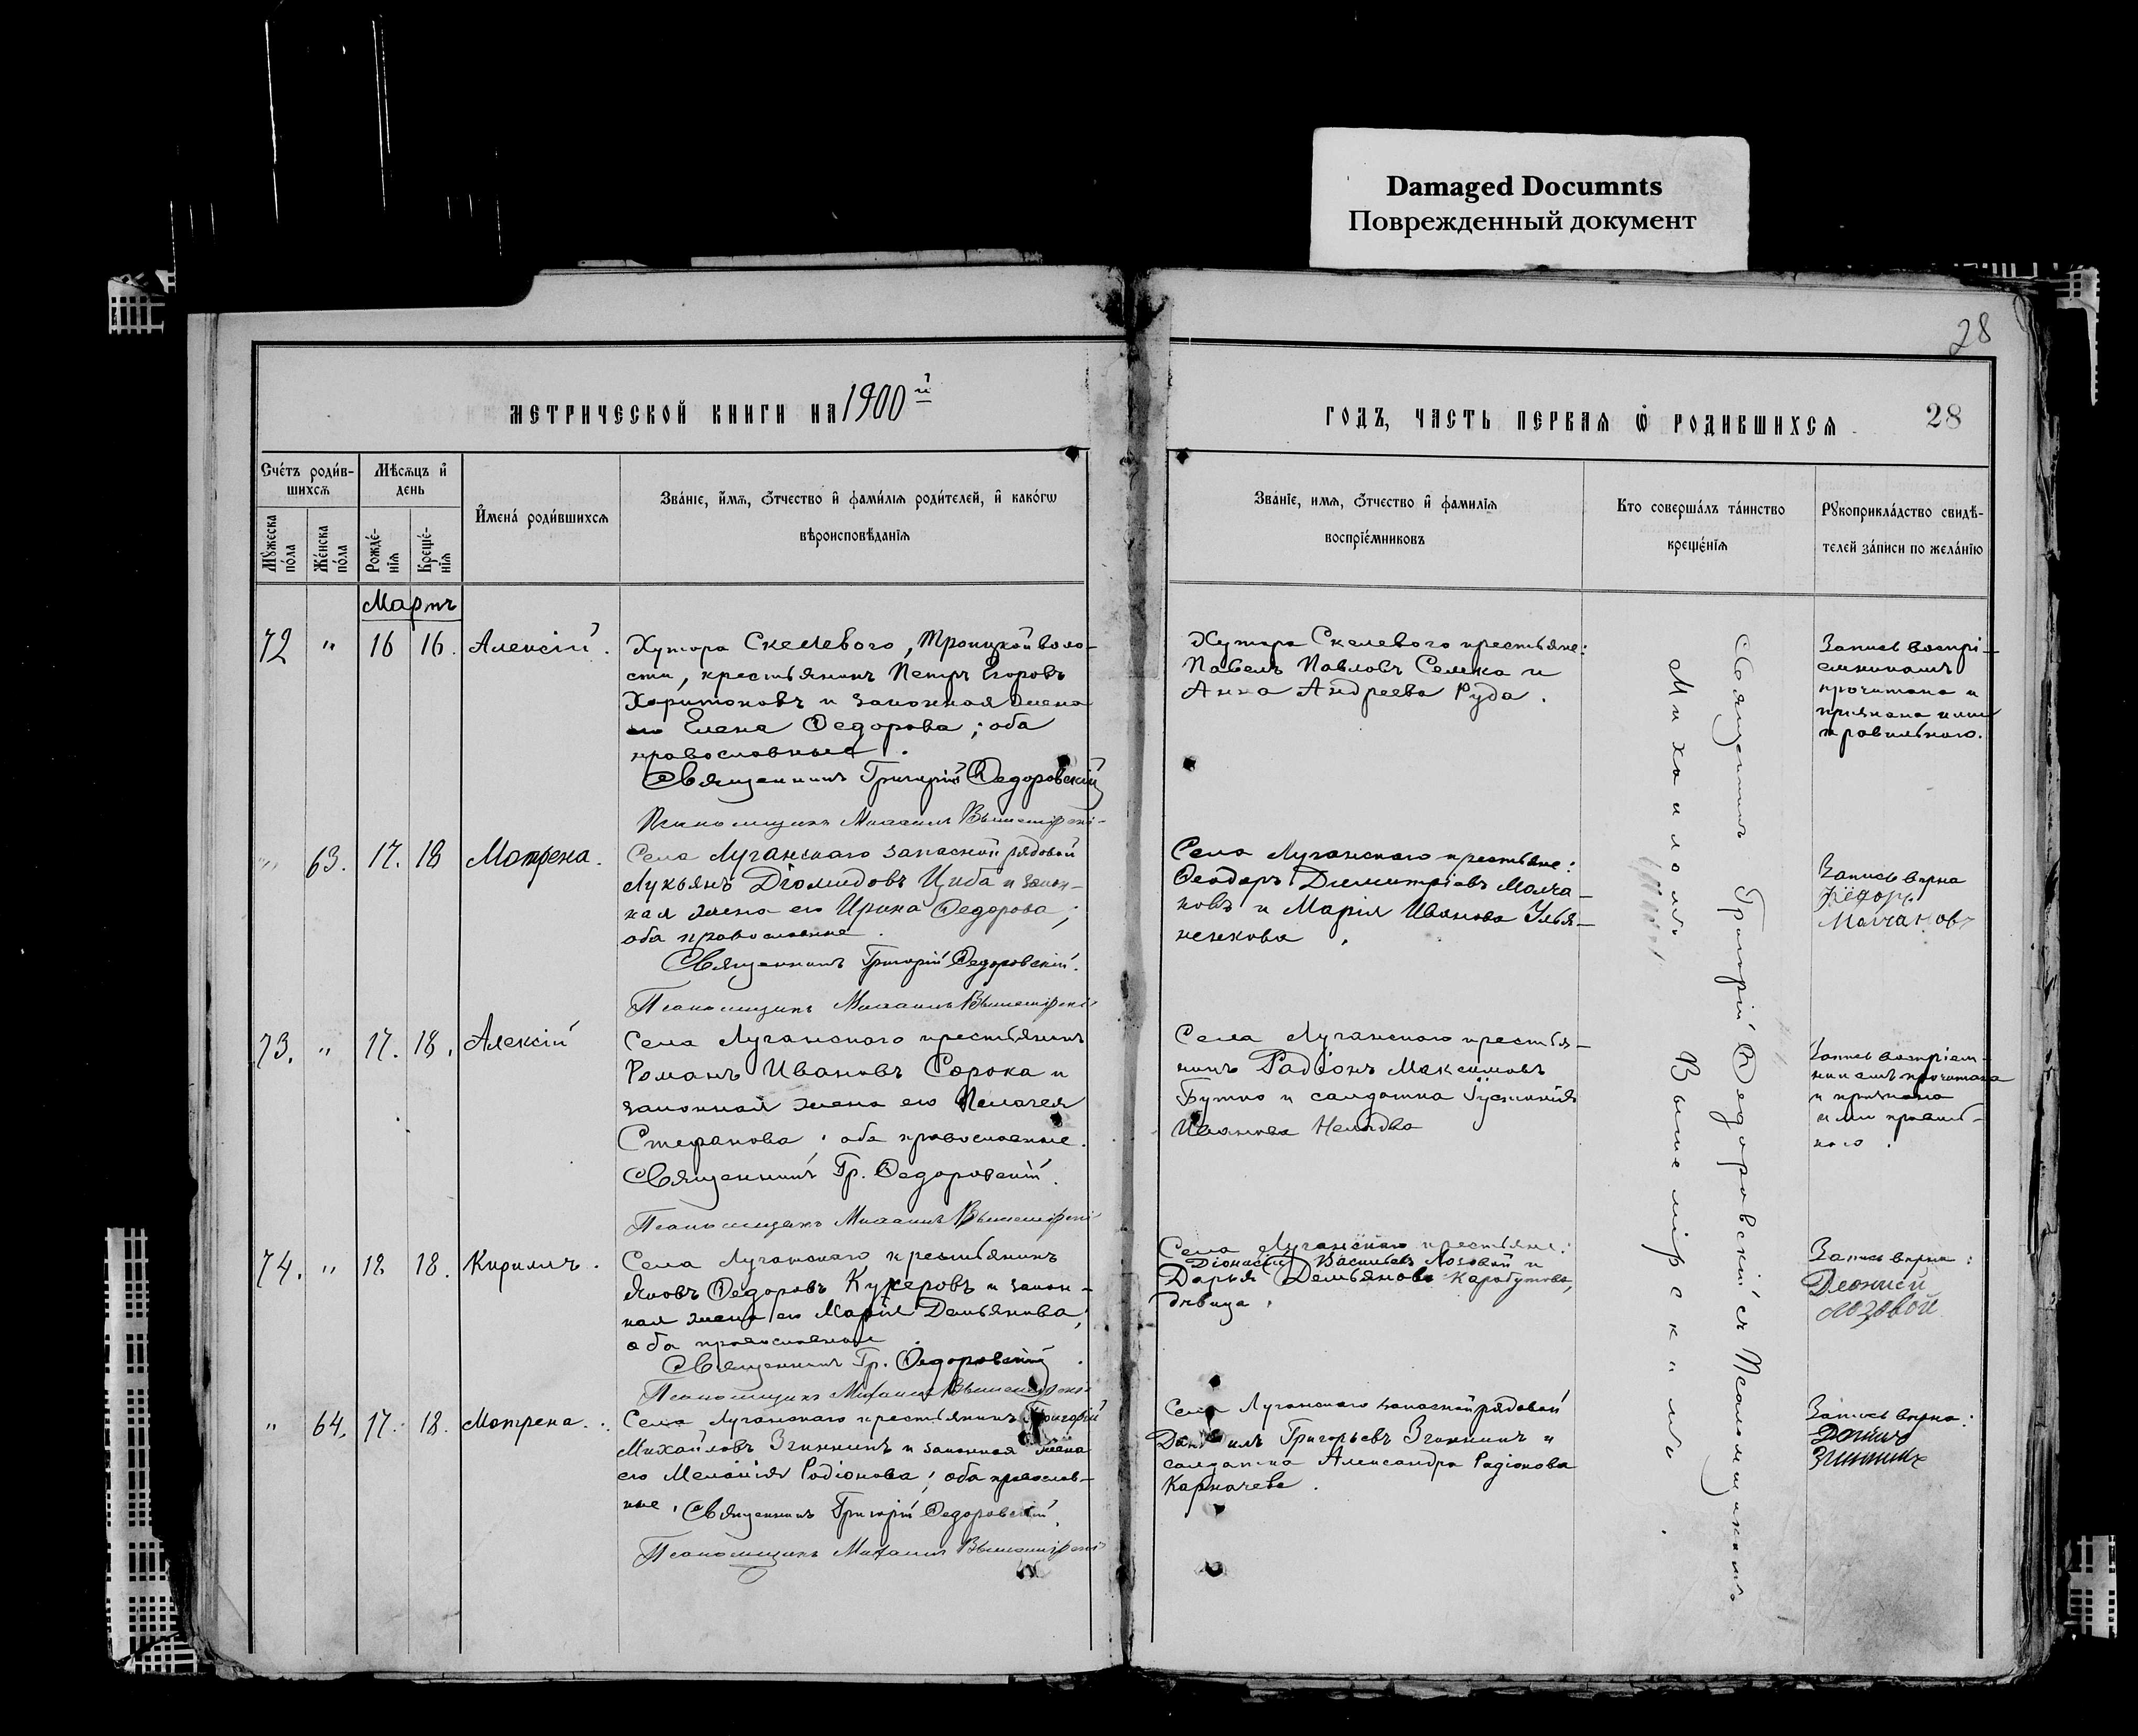 Damaged Documnts
Поврежденный документ
28
метрической книги на 1900й
годъ, часть первая ѡ родившихся
28
Счетъ родившихся
Мѣсяцъ и день
Имена родившихся
Званіе, имя, отчество и фамилія родителей, и какогѡ
вѣроисповѣданія
Мужеска пола
Женска пола
Рожденія
Крещенія
Званіе, имя, отчество и фамилія
воспріемниковъ
Кто совершалъ таинство
крещенія
Рукоприкладство свидѣ-
телей записи по желанію
Мартъ
72 " 16 16. Алексій.
Хутора Скелевого, Троицкой воло-
сти, крестьянинъ Петръ Егоровъ
Харитоновъ и законная жена
его Елена Ѳедорова; оба
православные.
Священникъ Григорій Ѳедоровскій
Псаломщикъ Михаилъ
Хутора Скелевого крестьяне:
Павелъ Павловъ Семка и
Анна Андреева Руда.
Запись воспрі-
емникамъ
прочитана и
признана ими
правильною.
" 63. 17. 18 Мотрена.
Села Луганскаго запасной рядовой
Лукьянъ Діомидовъ Циба и закон-
ная жена его Ирина Ѳедорова;
оба православные.
Священникъ Григорій Ѳедоровскій.
Псаломщикъ Михаилъ
Села Луганскаго крестьяне:
Ѳеодоръ Димитріевъ Молча-
новъ и Марія Иванова Улья-
ненкова.
Запись верна
Фёдоръ
Молчановъ
73. " 17. 18. Алексій
Села Луганского крестьянинъ
Романъ Ивановъ Сорока и
законная жена его Пелагея
Стефанова; оба православные.
Священникъ Гр. Ѳедоровскій.
Псаломщикъ Михаилъ
Села Луганского крестья-
нинъ Радіонъ Максимовъ
Бутко и салдатка
Иванова
Запись воспріем-
никамъ прочитана
и признана
ими правиль-
ною.
74. " 18 18. Кирилъ.
Села Луганского крестьянинъ
Яковъ Ѳедоровъ Кучеровъ и закон-
ная жена его Марія Демьянова;
оба православные
Священникъ Гр. Ѳедоровскій.
Псаломщикъ Михаилъ
Села Луганскаго крестьяне:
Діонисій Васильевъ Лозовой и
Дарья Демьянова Карабутова,
дѣвица.
Запись верна:
Деонисй
Лозовой
" 64. 17. 18. Мотрена.
Села Луганского крестьянинъ Григорій
Михайловъ Згинникъ и законная жена
его Меланія Родіонова; оба православ-
ные. Священникъ Григорій Ѳедоровскій.
Псаломщикъ Михаилъ
Села Луганского запасной рядовой
Григорьевъ Згинникъ и
салдатка Александра Радіонова
Карпачева.
Запись верна:
Данилъ
Згинникъ
Священникъ Григорій Ѳедоровскій съ Псаломщикомъ
Михаиломъ